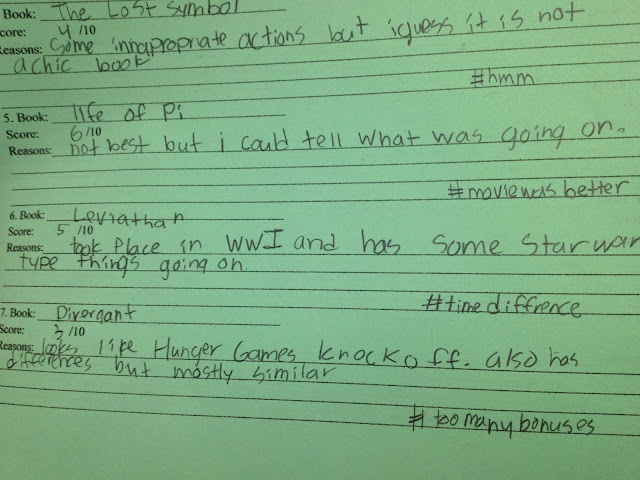 Book: The Lost Symbol
core: 4 /10
easons: Some innapropriate actions but iguess it is not
a chic book
#hmm
5. Book: life of Pi
Score: 6/10
Reasons: not best but i could tell what was going on.
#movie was better
6. Book: Leviathan
Score: 5 /10
Reasons: took place in WWI and has some star war
type things going on.
#time diffrence
7. Book: Divergant
Score: 3 /10
Reasons: looks like Hunger Games knock off. also has
differences but mostly similar
# too many bonuses